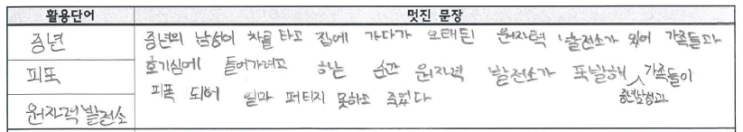 활용단어 멋진 문장
중년 중년의 남성이 차를 타고 집에 가다가 오태된 원자력 발전소가 있어 가족들과
피폭 호기심에 들어가려고 하는 순간 원자력 발전소가 폭발해 가족들이
중년남성과
원자력발전소 피폭 되어 얼마 버티지 못하고 죽었다